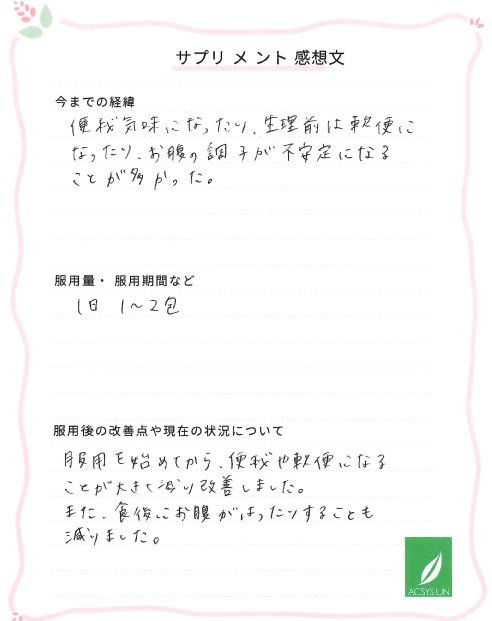 サプリメント 感想文
今までの経緯
便秘気味になったり、生理前は軟便に
なったり、お腹の調子が不安定になる
ことが多かった。
服用量・服用期間など
1日 1〜2包
服用後の改善点や現在の状況について
服用を始めてから、便秘や軟便になる
ことが大きく減り改善しました。
また、食後にお腹がはったりすることも
減りました。
ACSYS UN